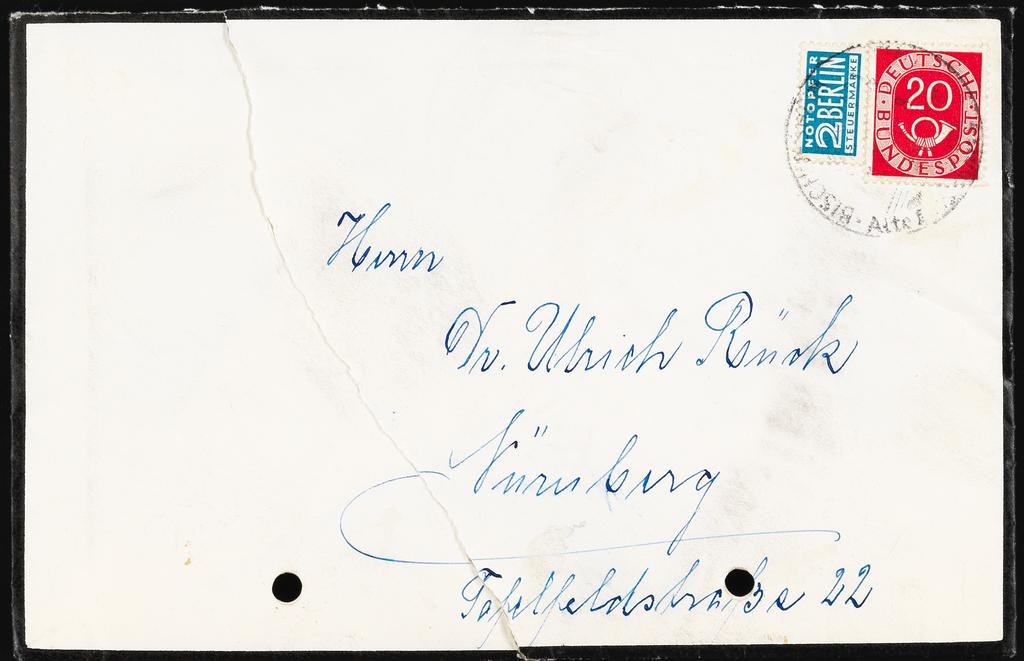 NOTOPFER
2 BERLIN
STEUERMARKE
DEUTSCHE
BUNDESPOST
20
Herrn
Dr. Ulrich Rück
Nürnberg
Tafelfeldstraße 22